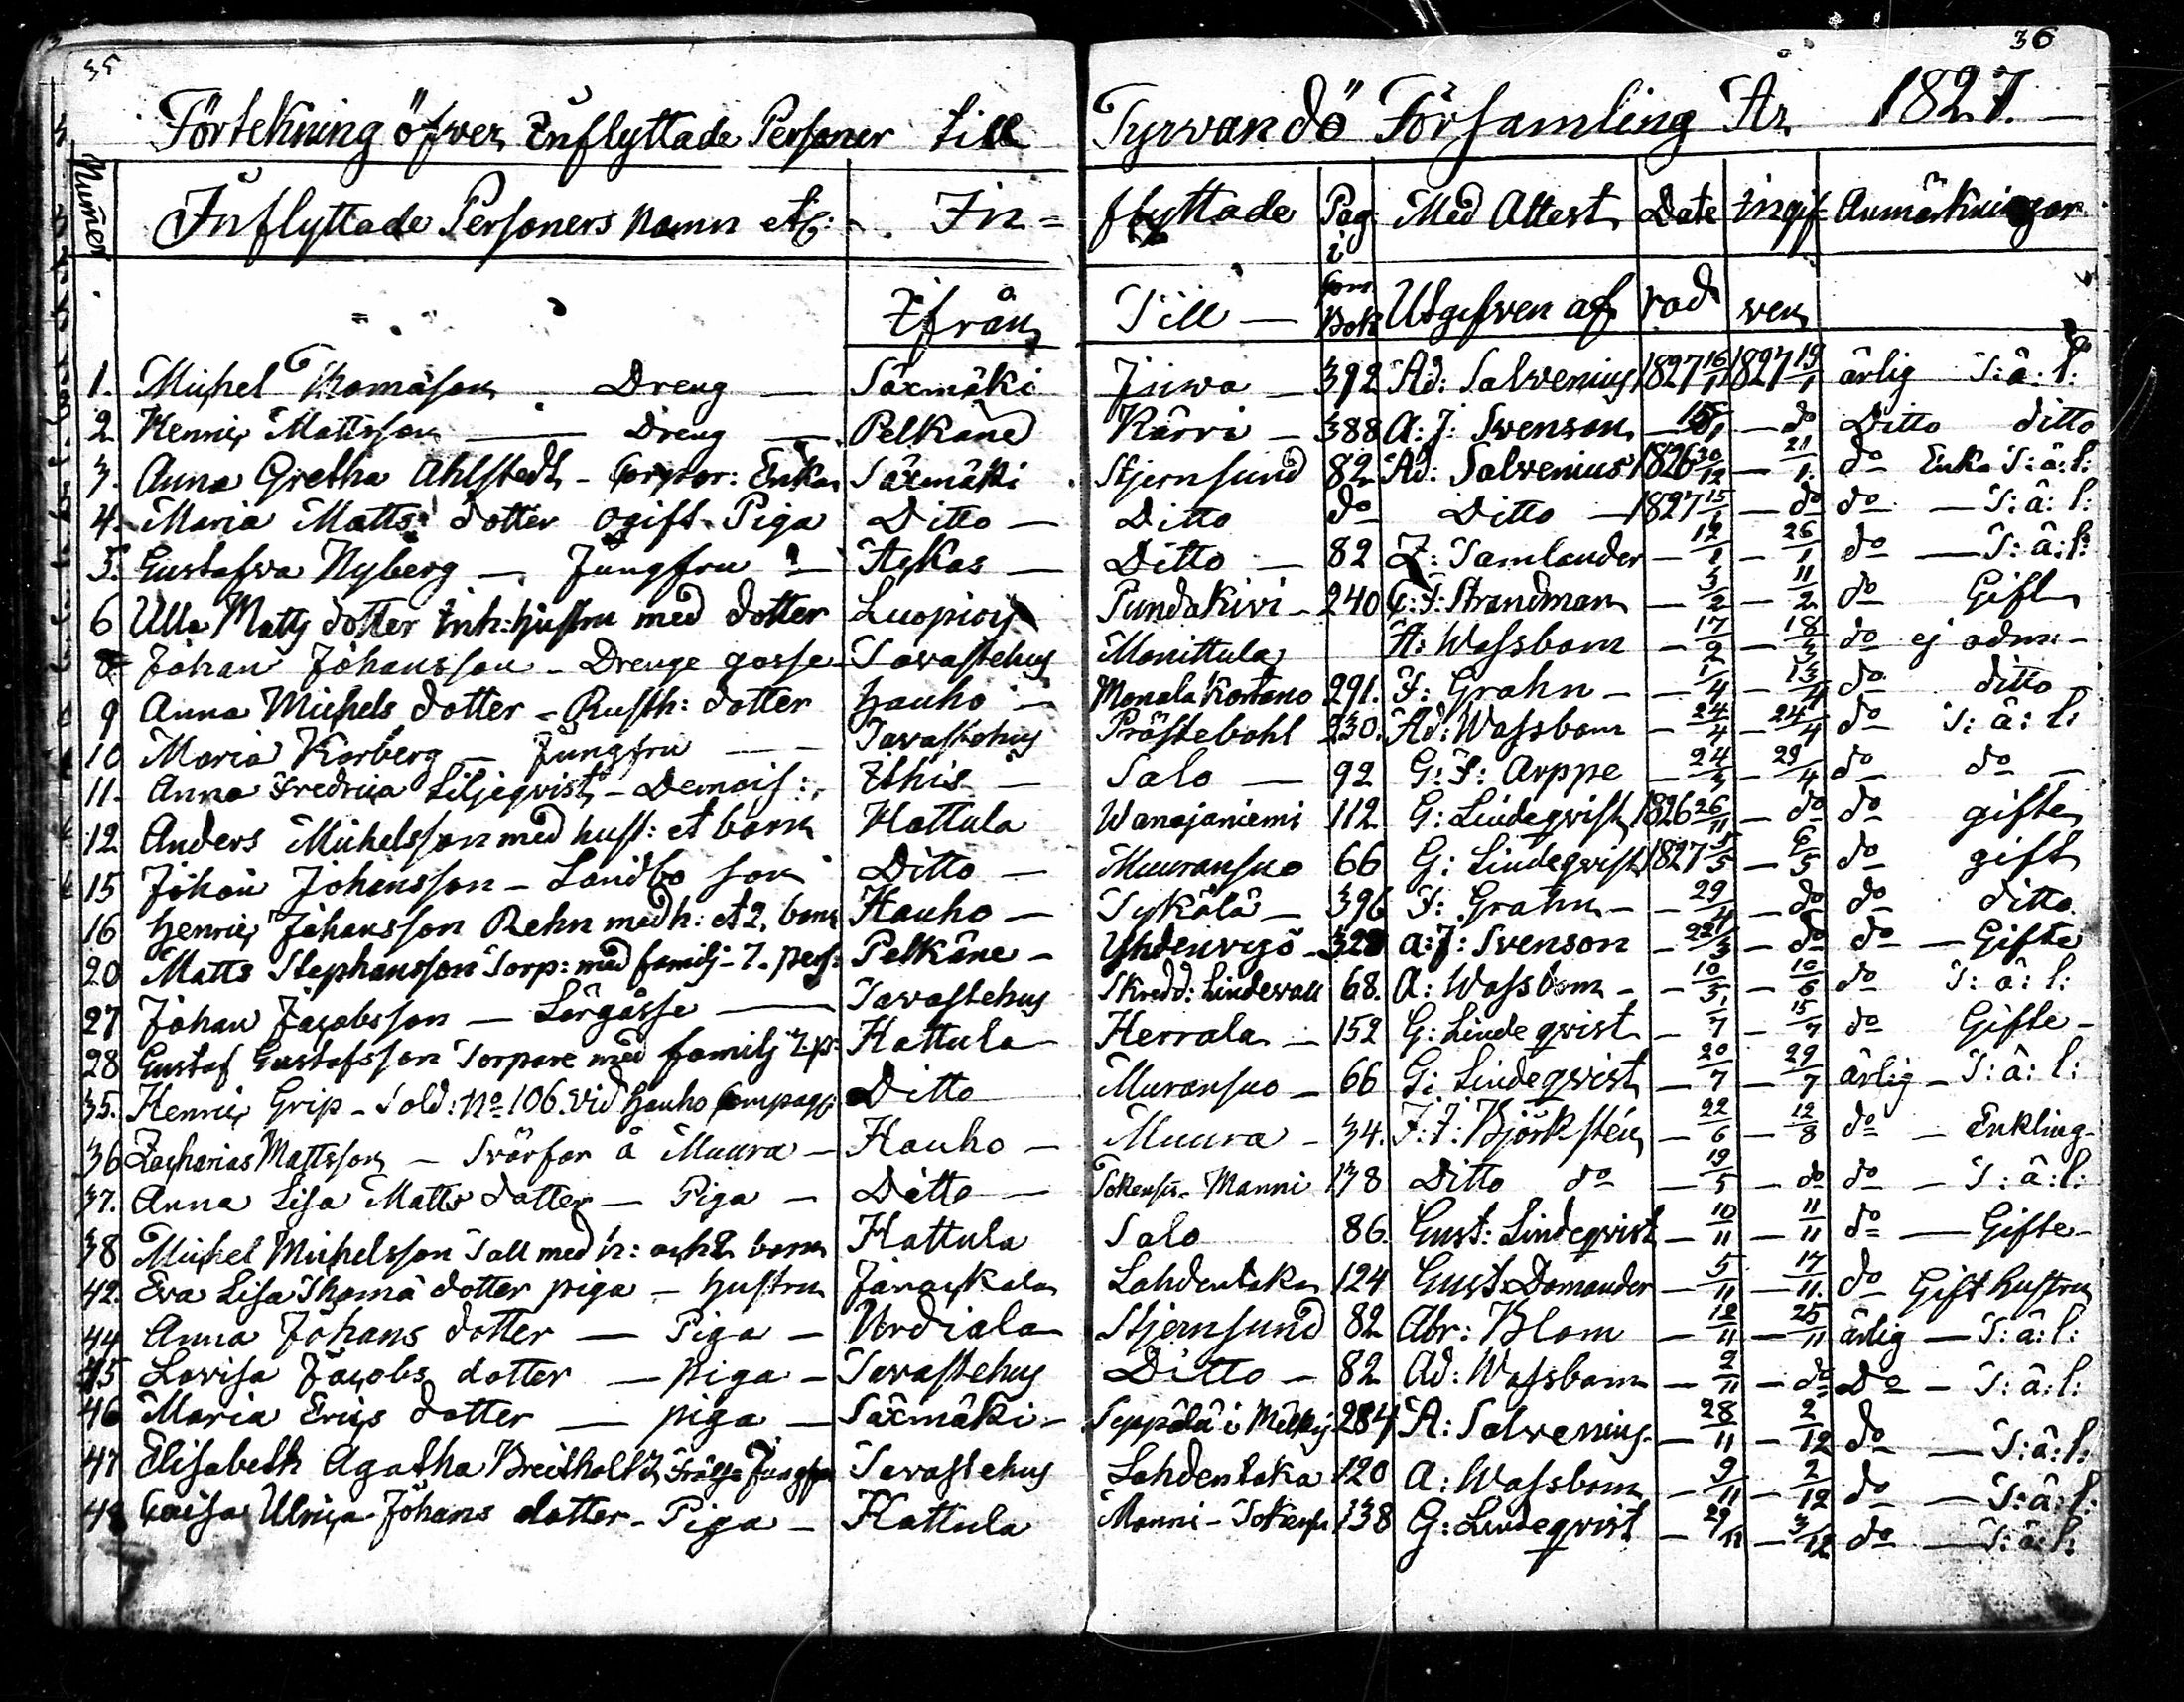 35
36
Förtekning öfver Inflyttade Personer till Tyrvändö Församling År 1827. —
Numer Inflyttade Personers Namn etc: In= flyttade Pag: Med Attest Date ingif Anmärkningar
Ifrån Till — i Com Bok Utgifven af rad ven
1. Michel Thomasson Dreng — Säxmäki Juwa — 392 Ad: Salvenius 1827 16/1 1827 19/1 ärlig T: ä: l:
2 Henric Mattsson — Dreng — Pelkäne Kärri — 388 A: J: Svenson — 15/1 — do Ditto ditto
3. Anna Gretha Ahlstedt - Corpor: Enka Säxmäki Stjernsund 82 Ad: Salvenius 1826 30/12 — 21/1 do Enka T: ä: l:
4. Maria Matts dotter ogift Piga Ditto — Ditto do Ditto — 1827 15/1 — do do — T: ä: l:
5. Gustafva Nyberg — Jungfru — Akkas — Ditto — 82 Z: Tamlander — 12/1 — 26/1 do — T: ä: l:
6 Ulla Matts dotter Inh: hustru med dotter Luopiois Pundakivi — 240 C: F: Strandman — 3/2 — 11/2 do Gift
8 Johan Johansson — Drenge gosse — Tavastehus Monittula A: Wassbom — 17/2 — 18/3 do ej adm: —
9 Anna Michels dotter — Rusth: dotter Hauho — Monala Kortano 291. F: Grahn — — 1/4 — 13/4 do ditto
10 Maria Korberg — Jungfru — — Tavastehus Prästebohl 230. Ad: Wassbom — 24/4 — 24/4 do T: ä: l:
11. Anna Fredrica Liljeqvist — Demois: Ithis — Salo — 92 G: F: Arppe — 24/3 — 29/4 do do —
12 Anders Michelsson med hust: et barn Hattula Wanajaniemi 112 G: Lindeqvist 1826 26/11 — do do gifte
15 Johan Johansson — Landbo son Ditto — Muuransuo 66 G: Lindeqvist 1827 5/5 — 6/5 do gift
16 Henric Johansson Rehn med h: et 2 barn Hauho — Tykölä — 396 F: Grahn — — 29/4 — do do ditto
20 Matts Stephansson Torp: med familj — 7. pers: Pelkäne — Yhdenvejö — 328 A: J: Svenson — 22/3 — do do — Gifte
27 Johan Jacobsson — Lärgåsse — Tavastehus Skredd: Lindevall 68. A: Wassbom — — 10/5 — 10/6 do T: ä: l:
28 Gustaf Gustafsson Torpare med familj 7. p: Hattula Herrala — 152 G: Lindeqvist — 1/7 — 15/7 do Gifte —
35. Henric Grip — Sold: No 106. vid Hauho Compag: Ditto Muransuo — 66 G: Lindeqvist — 20/7 — 29/7 ärlig — T: ä: l:
36 Zacharias Mattsson — Svärfar å Muura — Hauho — Muura — 34. J: J: Björkstén — 22/6 — 12/8 do — Enkling —
37. Anna Lisa Matts dotter — Piga — Ditto — Manni 138 Ditto do — 19/5 — do do — T: ä: l:
38 Michel Michelsson Tall med h: och 2 barn Hattula Salo 86. Gust: Lindeqvist — 10/11 — 11/11 do — Gifte —
42. Eva Lisa Thoma dotter piga — hustru Janackala Lahdentaka 124 Gust: Domander — 5/11 — 17/11. do Gift hustru
44 Anna Johans dotter — Piga — Urdiala Stjernsund 82 Abr: Blom — 12/11 — 25/11 ärlig — T: ä: l:
45 Lovisa Jacobs dotter — piga — Tavastehus Ditto — 82 Ad: Wassbom — 2/11 — do Do — T: ä: l:
46 Maria Erics dotter — piga — Säxmäki — Seppälä i 284 A: Salvenius — 28/11 — 2/12 do — T: ä: l:
47 Elisabeth Agatha Breitholtz Frälse Jungfru Tavastehus Lahdentaka 120 A: Wassbom — 9/11 — 2/12 do — T: ä: l:
48 Caisa Ulrica Johans dotter — Piga — Hattula Manni — 138 G: Lindeqvist — 29/11 — 3/12 do — T: ä: l: